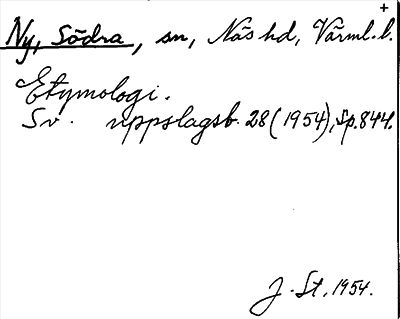 +
Ny, Södra, sn, Näs hd, Värml. l.
Etymologi.
Sv. uppslagsb. 28 (1954), sp. 844.
J. St. 1954.